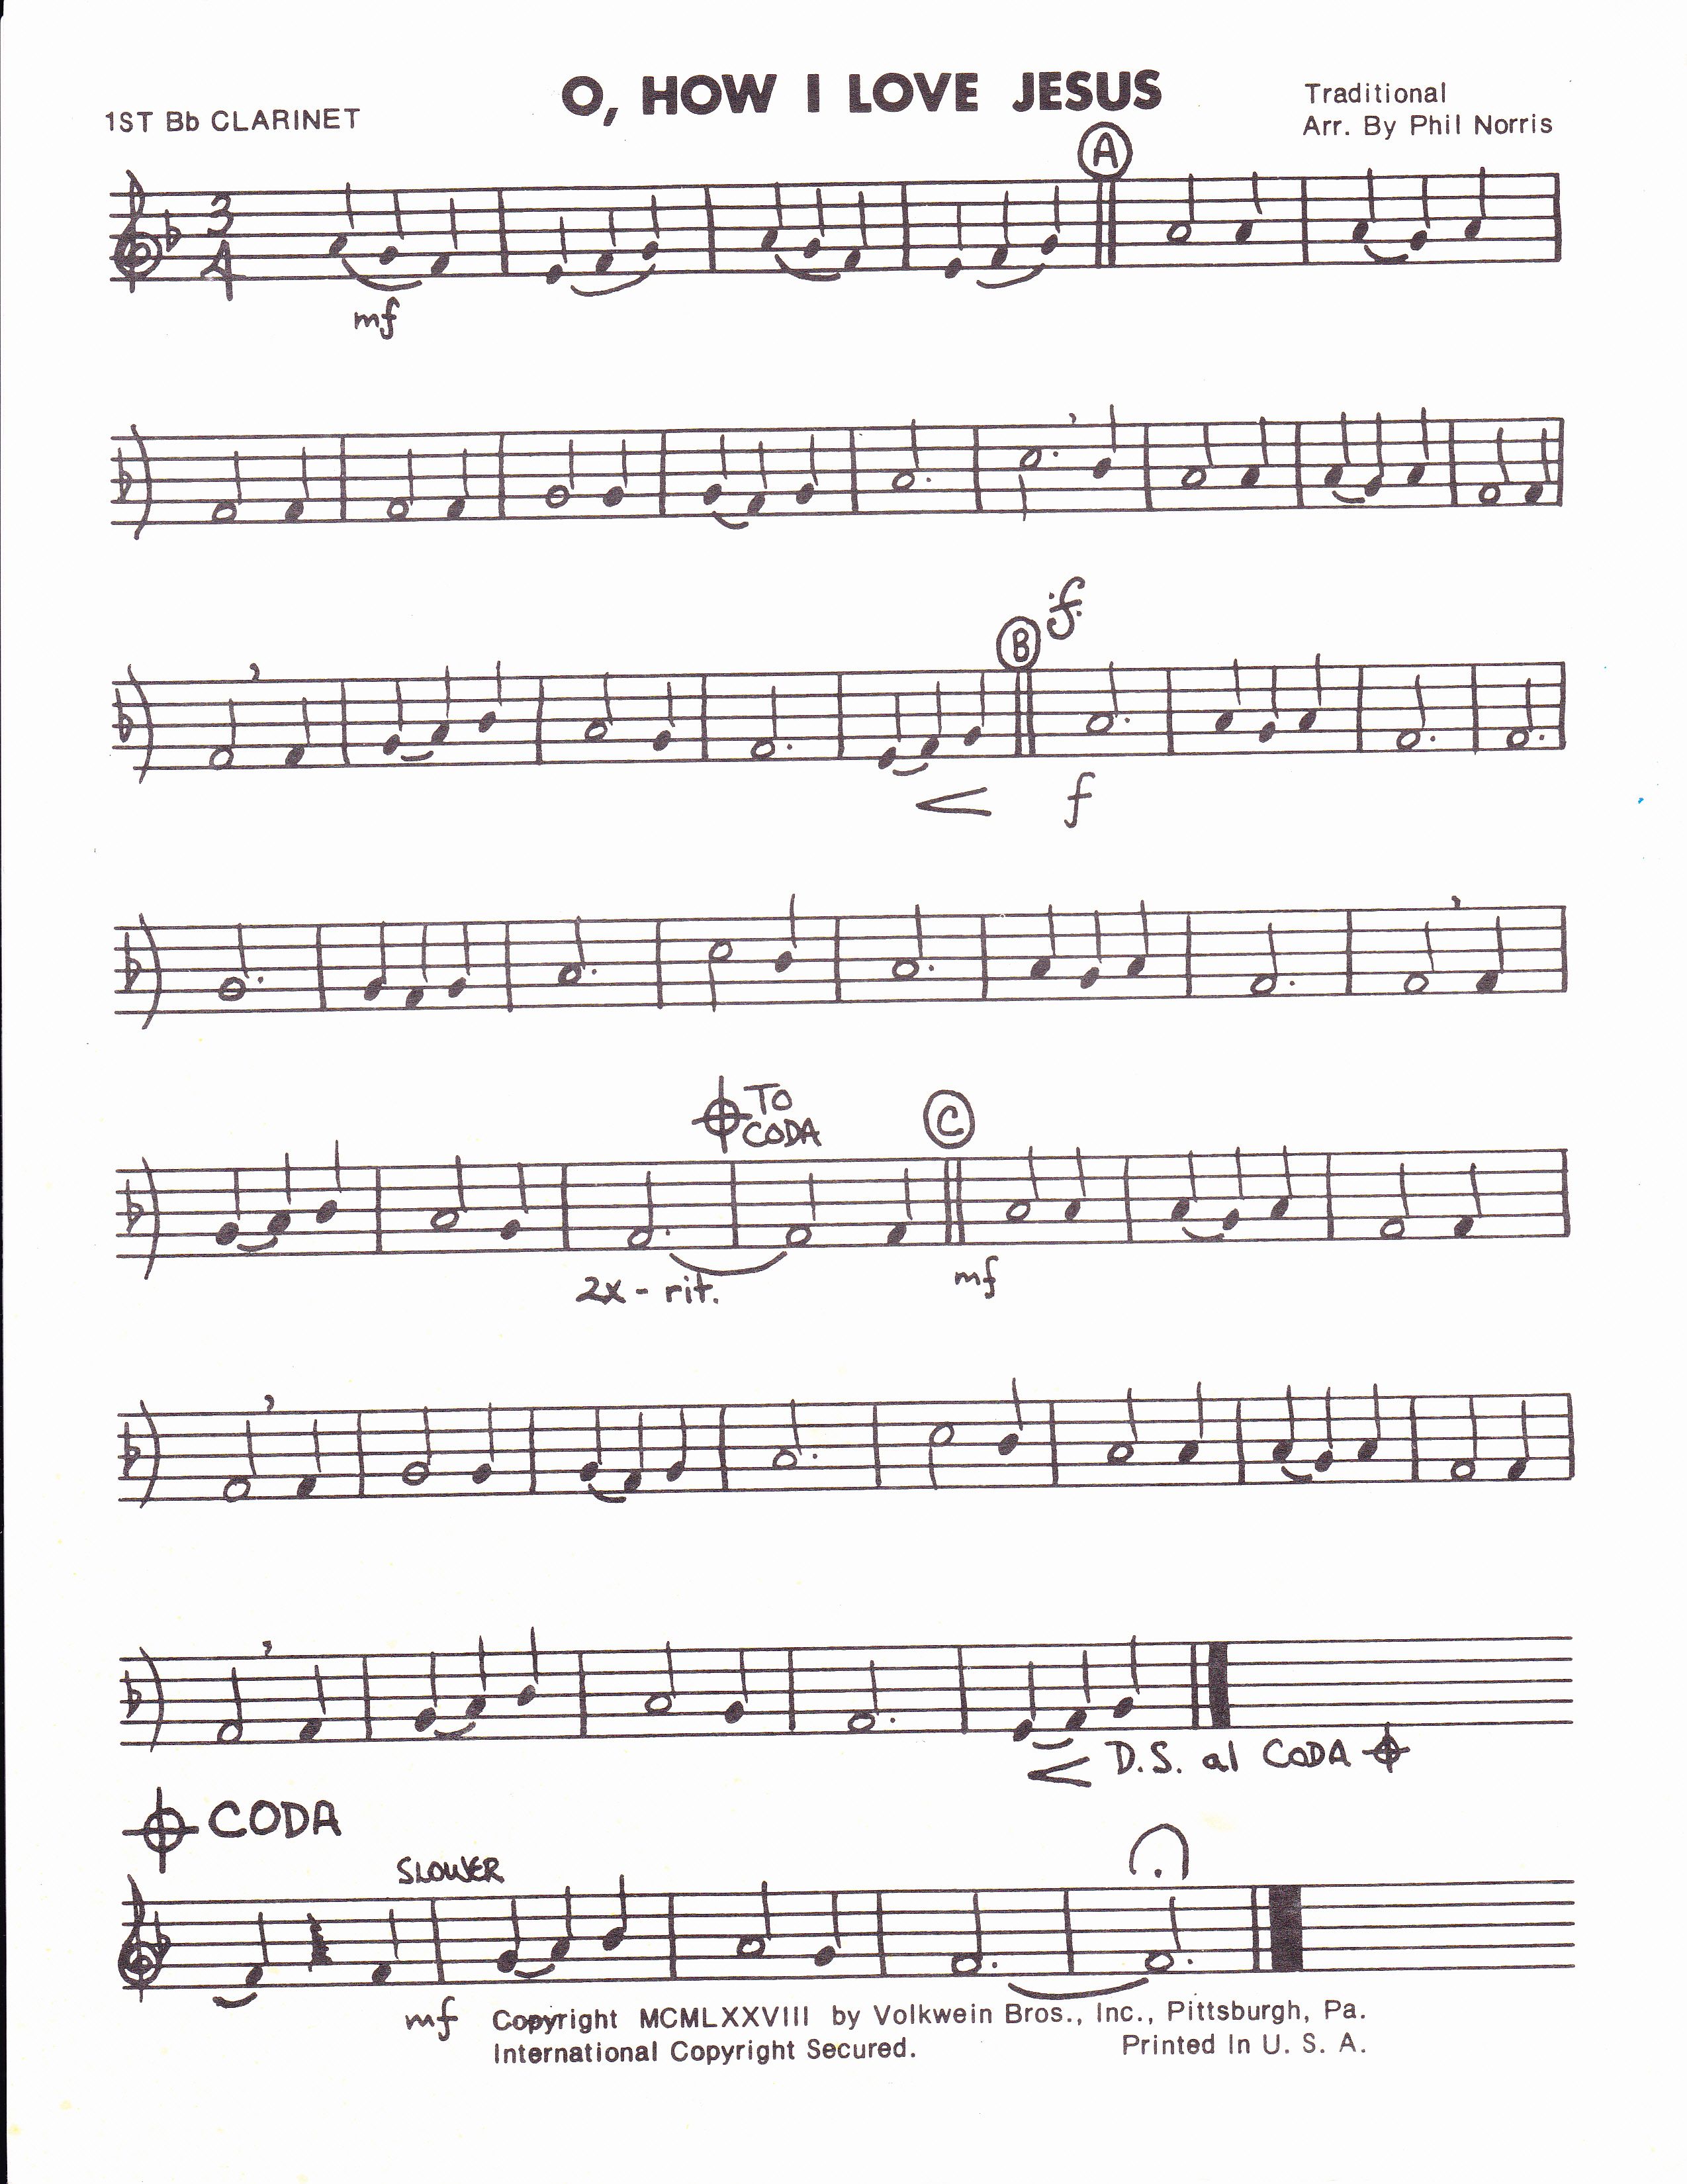 O, HOW I LOVE JESUS
1ST Bb CLARINET
Traditional
Arr. By Phil Norris
A
3
4
mf
B
f
TO
CODA
C
2x - rit.
mf
D.S. al CODA
CODA
SLOWER
mf
Copyright MCMLXXVIII by Volkwein Bros., Inc., Pittsburgh, Pa.
International Copyright Secured. Printed In U. S. A.